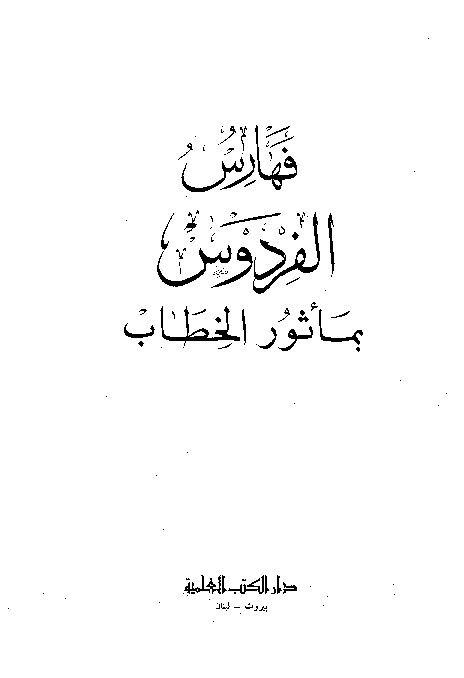 فَهَارِسُ
الفِردَوسُ
بمَأثورُ الخِطَاب
دار الكتب العلمية
بيروت - لبنان